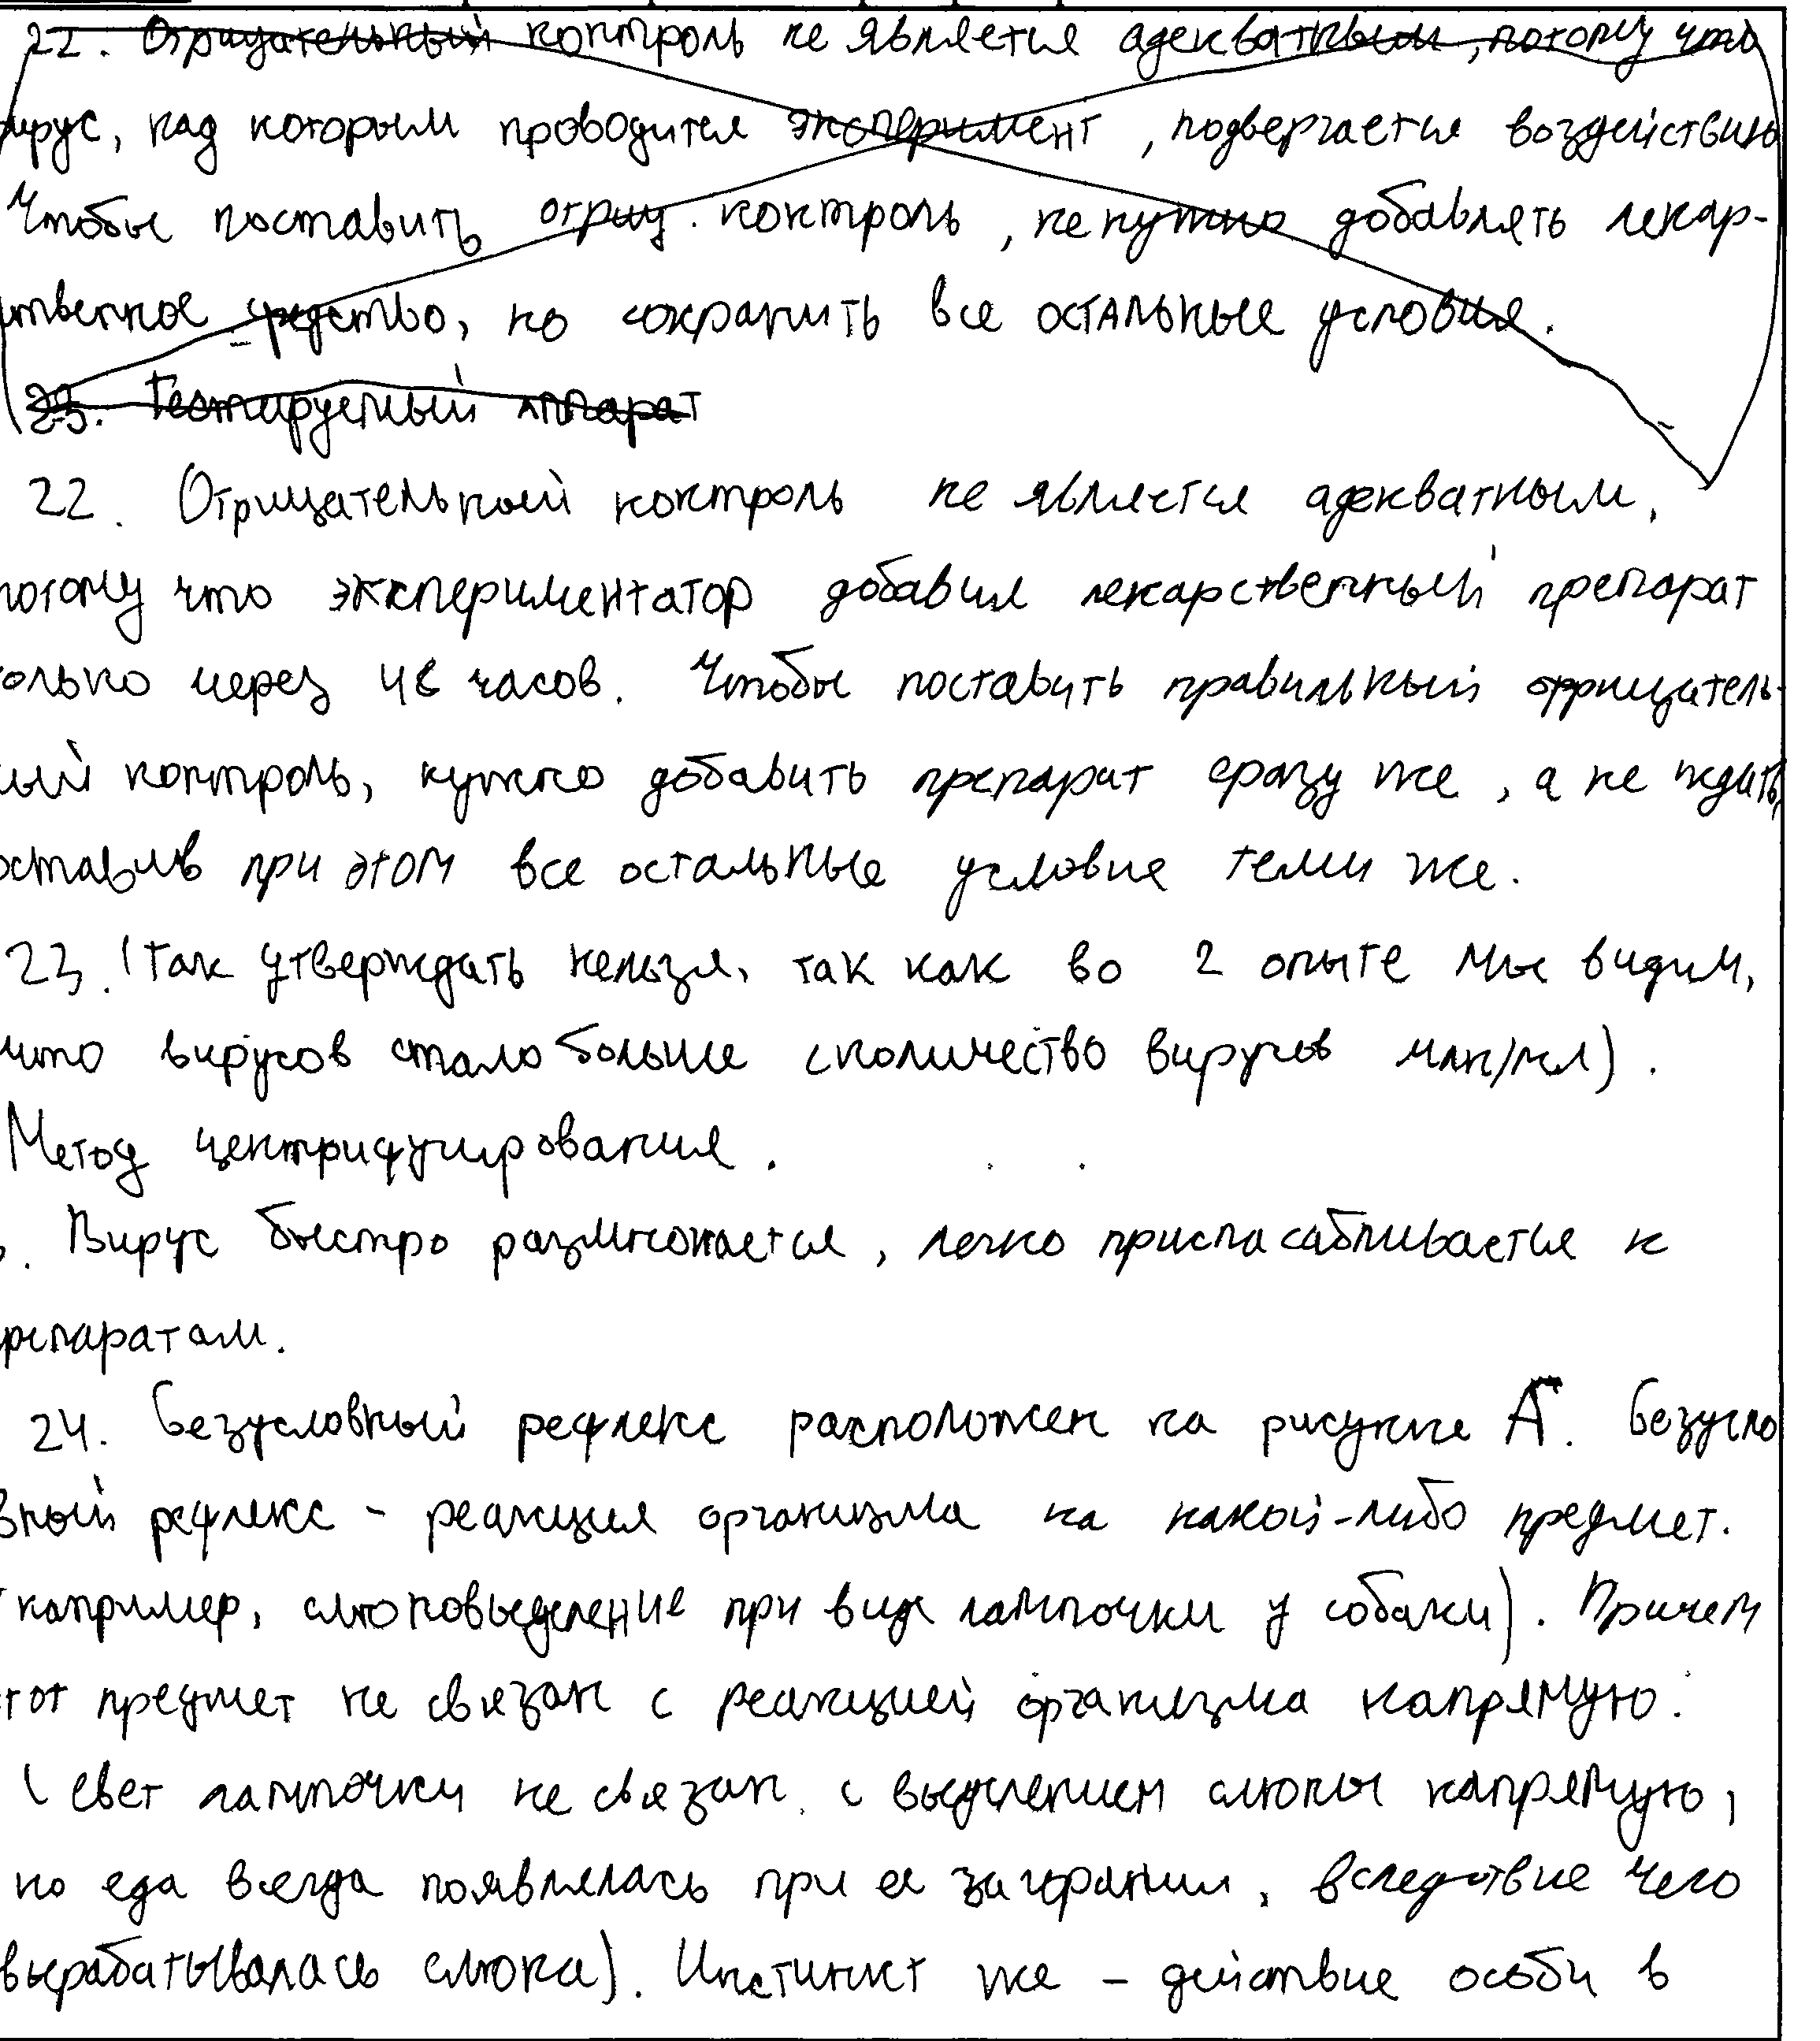 22. Отрицательный контроль не является адекватным, потому что
ирус, над которым проводится эксперимент, подвергается воздействию
Чтобы поставить отриц. контроль, не нужно добавлять лекар-
ственное средство, но сохранить все остальные условия.
23. Тестируемый аппарат
22. Отрицательный контроль не является адекватным,
потому что экспериментатор добавил лекарственный препарат
только через 48 часов. Чтобы поставить правильный отрицатель-
ный контроль, нужно добавить препарат сразу же, а не ждать,
оставив при этом все остальные условие теми же.
23. (Так утверждать нельзя, так как во 2 опыте мы видим,
что вирусов стало больше (количество вирусов млн/мл).
Метод центрифугирования.
. Вирус быстро размножается, легко приспасабливается к
препаратам.
24. Безусловный рефлекс расположен на рисунке А. Безусло
вный рефлекс - реакция организма на какой-либо предмет.
(например, слюновыделение при виде лампочки у собаки). Причем
этот предмет не связан с реакцией организма напрямую.
(свет лампочки не связан с выделением слюны напрямую,
но еда всегда появлялась при ее загорании, вследствие чего
вырабатывалась слюна). Инстинкт же - действие особи в